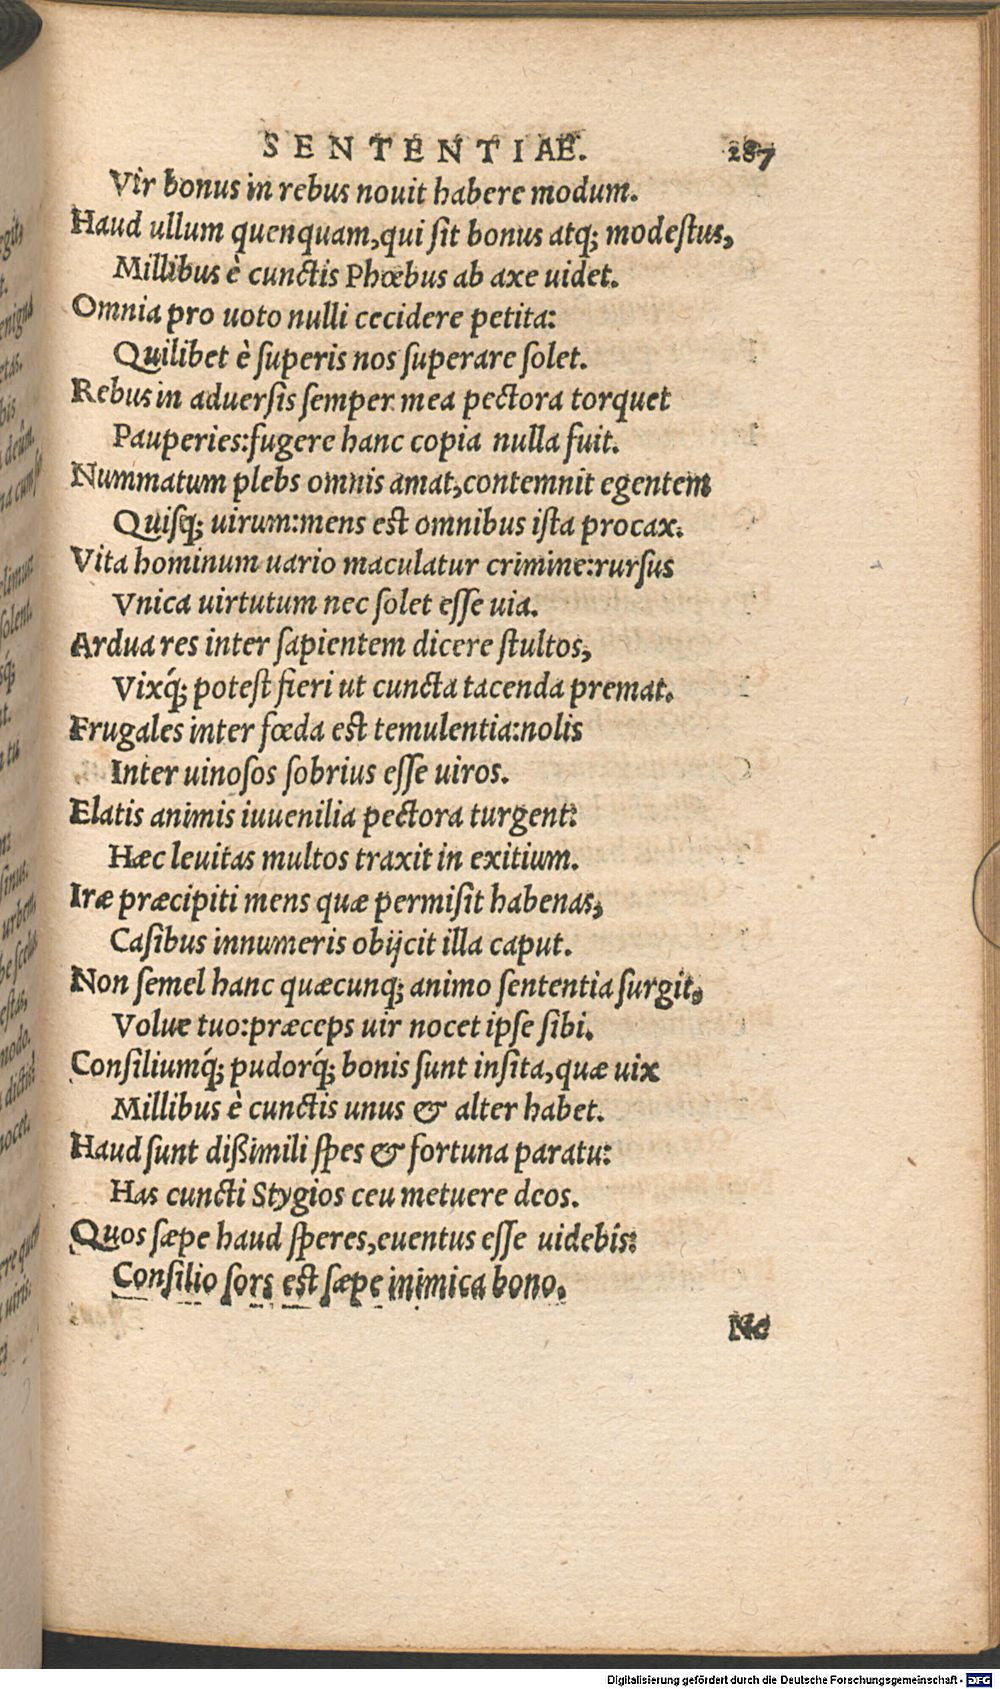 SENTENTIAE. 287
Vir bonus in rebus nouit habere modum.
Haud ullum quenquam, qui ſit bonus atq; modeſtus,
Millibus è cunctis Phœbus ab axe uidet.
Omnia pro uoto nulli cecidere petita:
Quilibet è ſuperis nos ſuperare ſolet.
Rebus in aduerſis ſemper mea pectora torquet
Pauperies: fugere hanc copia nulla fuit.
Nummatum plebs omnis amat, contemnit egentem
Quiſq; uirum: mens est omnibus iſta procax.
Vita hominum uario maculatur crimine: rurſus
Vnica uirtutum nec ſolet eſſe uia.
Ardua res inter ſapientem dicere ſtultos,
Vixq́; poteſt fieri ut cuncta tacenda premat.
Frugales inter fœda est temulentia: nolis
Inter uinoſos ſobrius eſſe uiros.
Elatis animis iuuenilia pectora turgent:
Hæc leuitas multos traxit in exitium.
Iræ præcipiti mens quæ permiſit habenas,
Caſibus innumeris obijcit illa caput.
Non ſemel hanc quæcunq; animo ſententia ſurgit,
Volue tuo: præceps uir nocet ipſe ſibi.
Conſiliumq́; pudorq́; bonis ſunt inſita, quæ uix
Millibus è cunctis unus & alter habet.
Haud ſunt dißimili ſpes & fortuna paratu:
Has cuncti Stygios ceu metuere deos.
Quos ſæpe haud ſperes, euentus eſſe uidebis:
Conſilio ſors est ſæpe inimica bono.
Ne
Digitalisierung gefördert durch die Deutsche Forschungsgemeinschaft - DFG